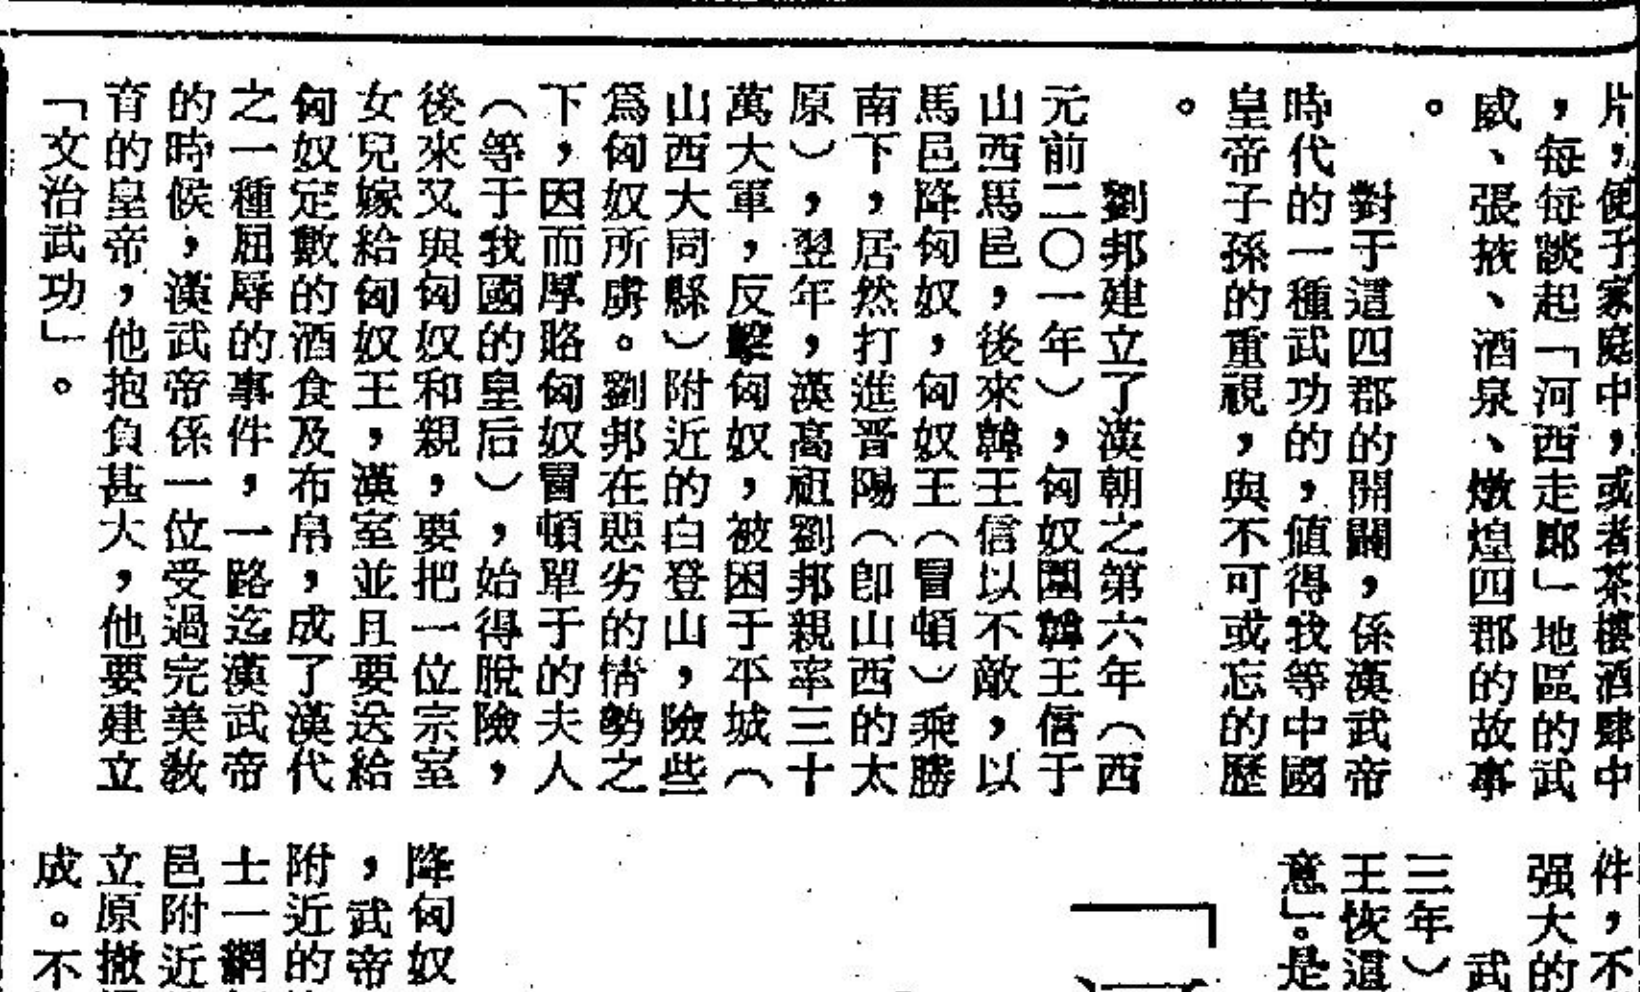 片,便子家庭中,或者茶樓酒肆中
,每每談起「河西走廊」地區的武
威、張掖、酒泉、燉煌四郡的故事
。
對于這四郡的開闢,係漢武帝
時代的一種武功的,值得我等中國
皇帝子孫的重視,與不可或忘的歷
。
劉邦建立了漢朝之第六年(西
元前二〇一年),匈奴圍韓王信于
山西馬邑,後來韓王信以不敵,以
馬邑降匈奴,匈奴王(冒頓)乘勝
南下,居然打進晋陽(卽山西的太
原),翌年,漢高祖劉邦親率三十
萬大軍,反擊匈奴,被困于平城(
山西大同縣)附近的白登山,險些
爲匈奴所虜。劉邦在惡劣的情勢之
下,因而厚賂匈奴冒頓單于的夫人
(等于我國的皇后),始得脫險,
後來又與匈奴和親,要把一位宗室
女兒嫁給匈奴王,漢室並且要送給
匈奴定數的酒食及布帛,成了漢代
之一種屈辱的事件,一路迄漢武帝
的時候,漢武帝係一位受過完美敎
育的皇帝,他抱負甚大,他要建立
「文治武功」。
件,不
强大的
武
三年)
王恢還
意」。是
降匈奴
,武帝
附近的
士一網
邑附近
立原撤
成。不